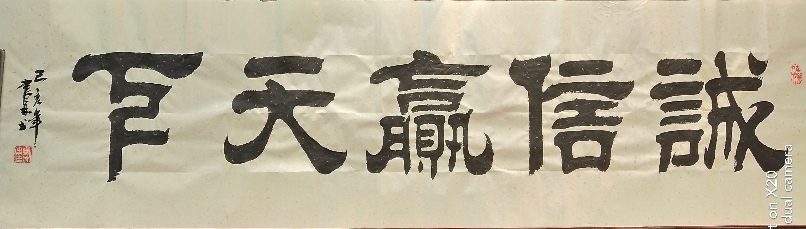 誠信贏天下
己亥年
t on X20
dual camera